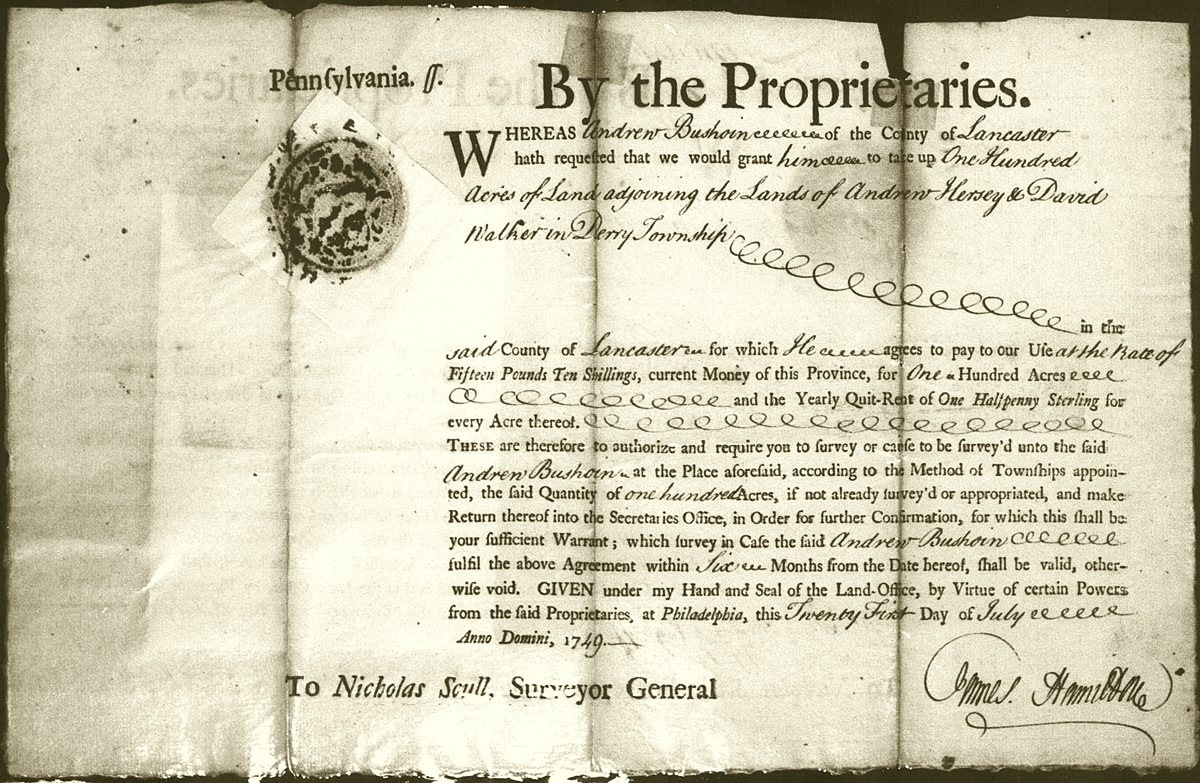 Pennſylvania. ſſ.
By the Proprietaries.
WHEREAS Andrew Bushoin of the County of Lancaster
hath requeſted that we would grant him to take up One Hundred
Acres of Land adjoining the Lands of Andrew Hersey & David
Walker in Derry Township
in the
said County of Lancaster for which He agrees to pay to our Uſe at the Rate of
Fifteen Pounds Ten Shillings, current Money of this Province, for One Hundred Acres
and the Yearly Quit-Rent of One Halfpenny Sterling for
every Acre thereof.
THESE are therefore to authorize and require you to ſurvey or cauſe to be ſurvey'd unto the ſaid
Andrew Bushoin at the Place aforeſaid, according to the Method of Townſhips appoin-
ted, the ſaid Quantity of one hundred Acres, if not already ſurvey'd or appropriated, and make
Return thereof into the Secretaries Office, in Order for further Confirmation, for which this ſhall be
your ſufficient Warrant; which ſurvey in Caſe the ſaid Andrew Bushoin
fulfil the above Agreement within Six Months from the Date hereof, ſhall be valid, other-
wiſe void. GIVEN under my Hand and Seal of the Land-Office, by Virtue of certain Powers
from the ſaid Proprietaries, at Philadelphia, this Twenty First Day of July
Anno Domini, 1749.
To Nicholas Scull, Surveyor General
James Hamilton